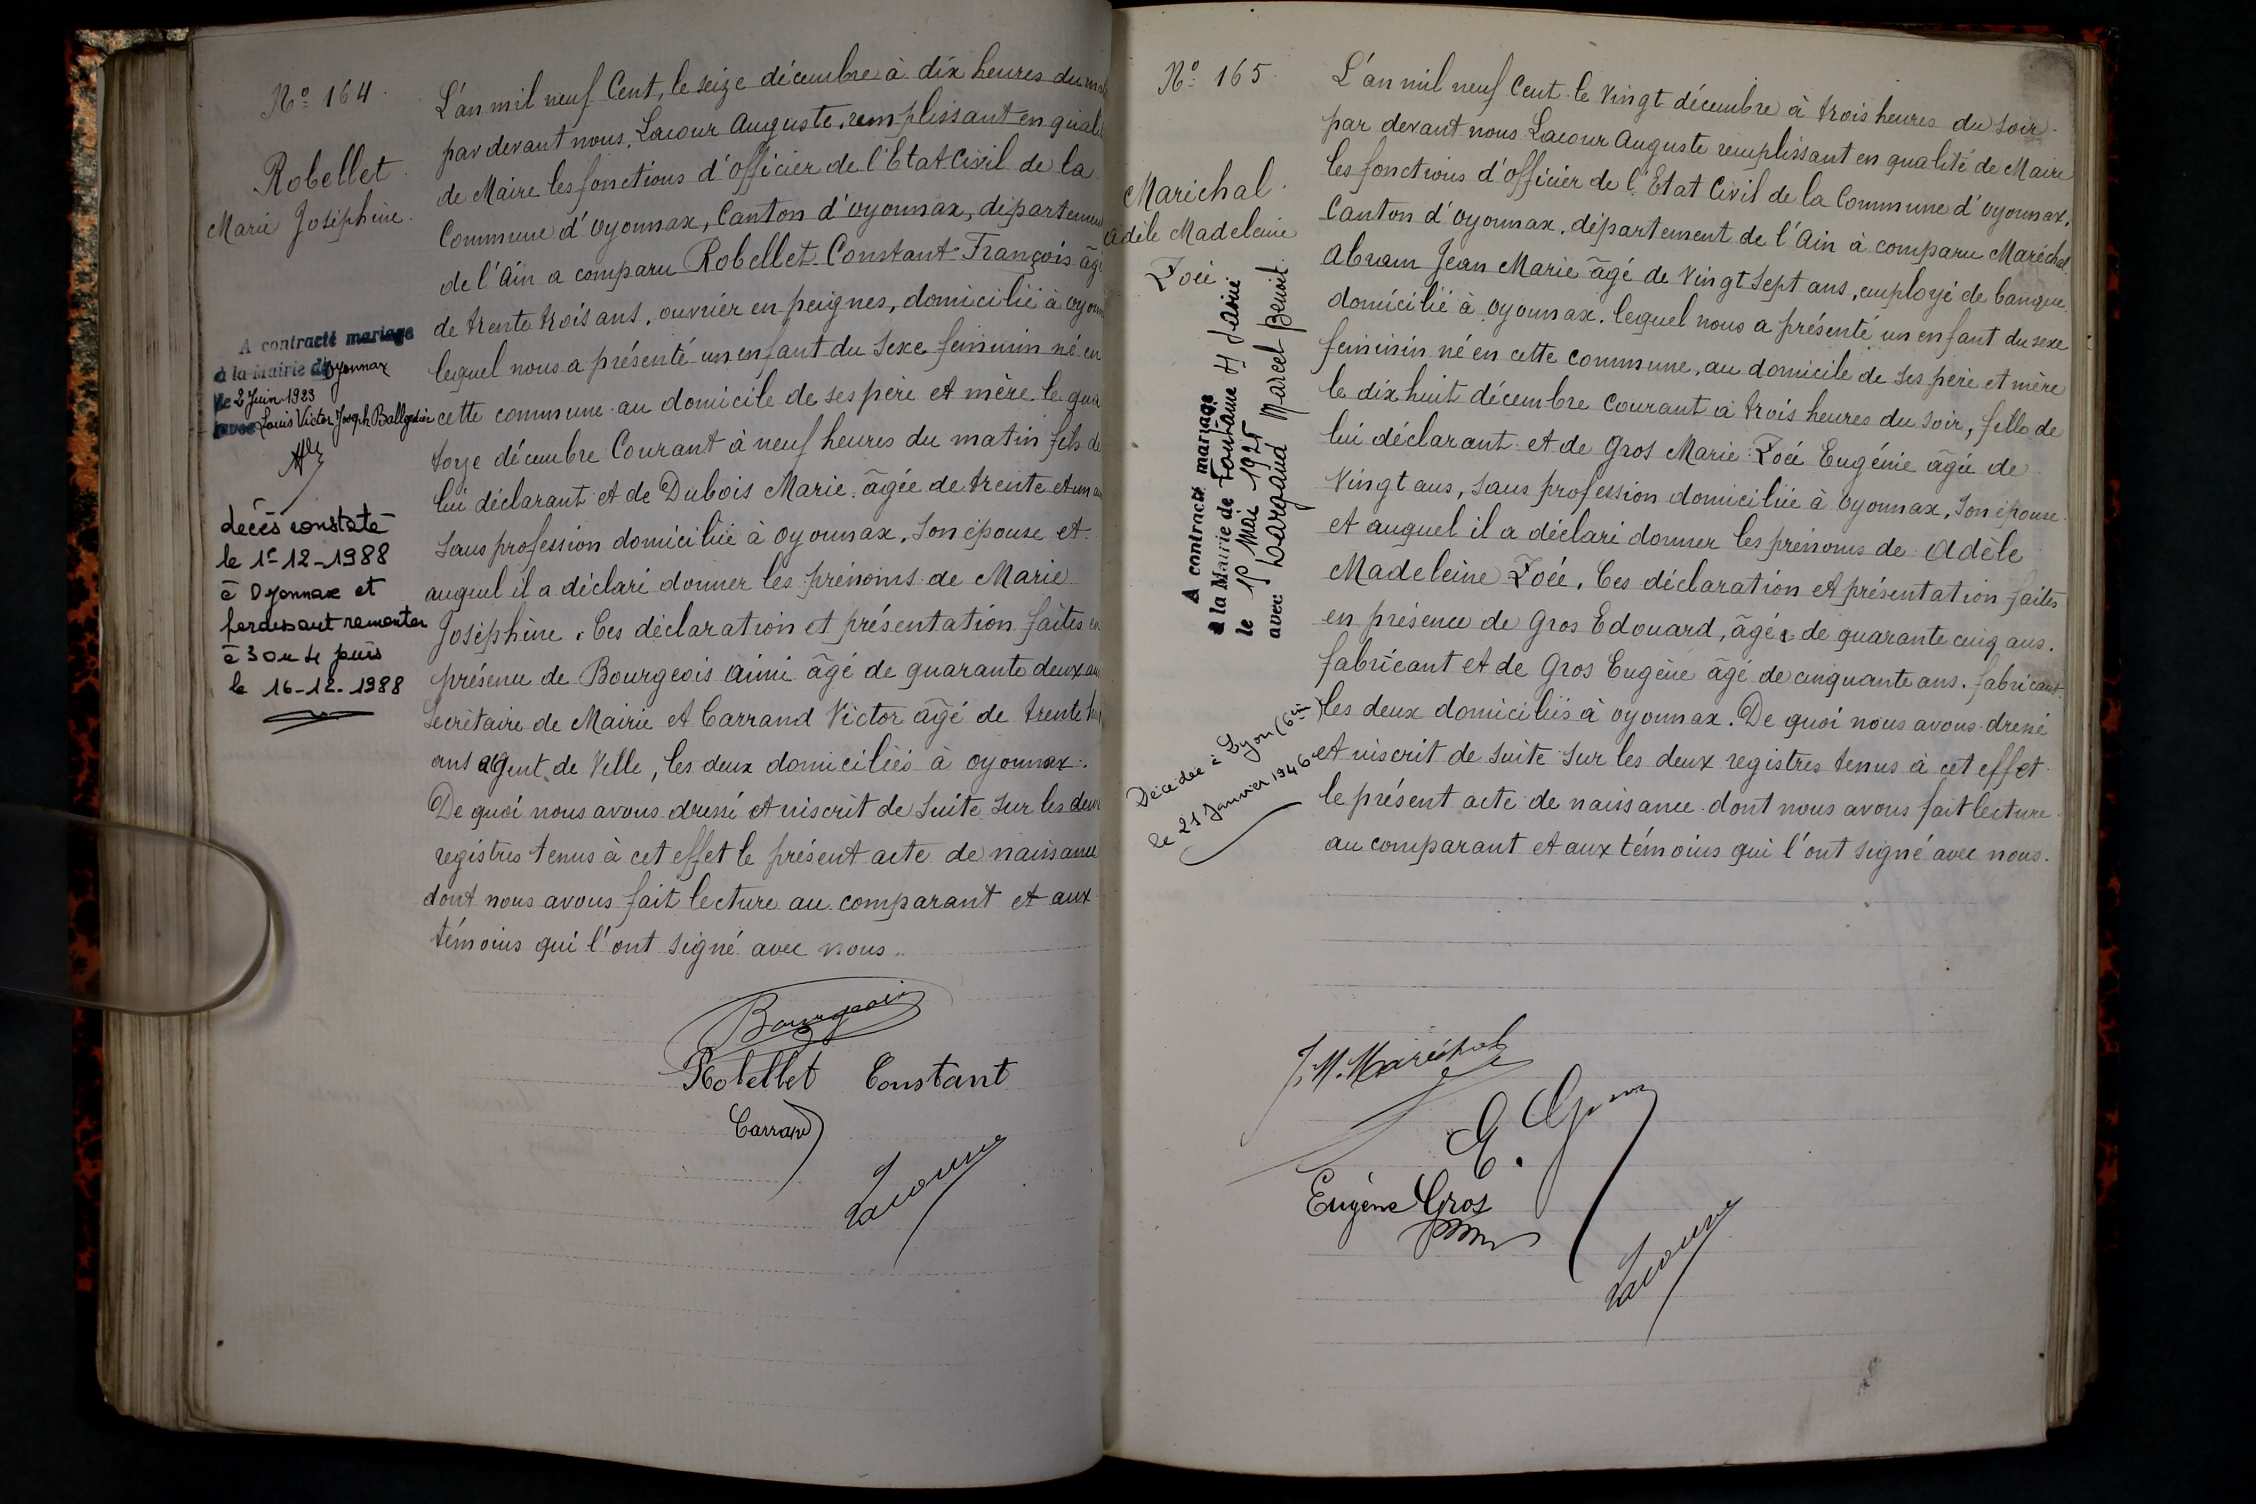 No 164
Robellet
Marie Joséphine.
A contracté mariage
à la Mairie de Oyonnax
le 2 Juin 1923
avec Louis Victor Joseph
décès constaté
le 1er-12-1988
à Oyonnax et
paraissant remonter
à 3 ou 4 jours
le 16-12-1988
L'an mil neuf Cent, le seize décembre à dix heures du
par devant nous, Lacour Auguste, remplissant en
de Maire les fonctions d'officier de l'Etat Civil de la
Commune d'Oyonnax, Canton d'Oyonnax, département
de l'Ain a comparu Robellet Constant François âgé
de trente trois ans, ouvrier en peignes, domicilié à
lequel nous a présenté un enfant du sexe féminin né en
cette commune au domicile de ses père et mère le qua
torze décembre Courant à neuf heures du matin fils de
lui déclarant et de Dubois Marie, âgée de trente et un
sans profession domiciliée à Oyonnax, son épouse et
auquel il a déclaré donner les prénoms de Marie
Joséphine. Ces déclaration et présentation faites en
présence de Bourgeois Aimé âgé de quarante deux ans
secrétaire de Mairie et Carrand Victor âgé de trente
ans agent de Ville, les deux domiciliés à Oyonnax.
De quoi nous avons dressé et inscrit de suite sur les deux
registres tenus à cet effet le présent acte de naissance
dont nous avons fait lecture au comparant et aux
témoins qui l'ont signé avec nous.
Bourgeois
Robellet Constant
Carrand
Lacour
No 165
Maréchal
Adèle Madeleine
Zoée
A contracté mariage
à la Mairie de Fontaine
le 1er Mai 1925
avec Marcel Benoit
Décédée à Lyon (6è)
le 21 Janvier 1946
L'an mil neuf Cent le Vingt décembre à trois heures du soir
par devant nous Lacour Auguste remplissant en qualité de Maire
les fonctions d'officier de l'Etat Civil de la Commune d'Oyonnax,
Canton d'Oyonnax, département de l'Ain à comparu Maréchal
Abram Jean Marie âgé de Vingt sept ans, employé de banque
domicilié à Oyonnax, lequel nous a présenté un enfant du sexe
féminin né en cette commune, au domicile de ses père et mère
le dix huit décembre courant à trois heures du soir, fille de
lui déclarant et de Gros Marie Zoée Eugénie âgée de
Vingt ans, sans profession domiciliée à Oyonnax, son épouse
et auquel il a déclaré donner les prénoms de Adèle
Madeleine Zoée. Ces déclaration et présentation faites
en présence de Gros Edouard, âgé de quarante cinq ans.
fabricant et de Gros Eugène âgé de cinquante ans. fabricant
les deux domiciliés à Oyonnax. De quoi nous avons dressé
et inscrit de suite sur les deux registres tenus à cet effet
le présent acte de naissance dont nous avons fait lecture
au comparant et aux témoins qui l'ont signé avec nous.
J. M. Maréchal
E. Gros
Eugène Gros
Lacour